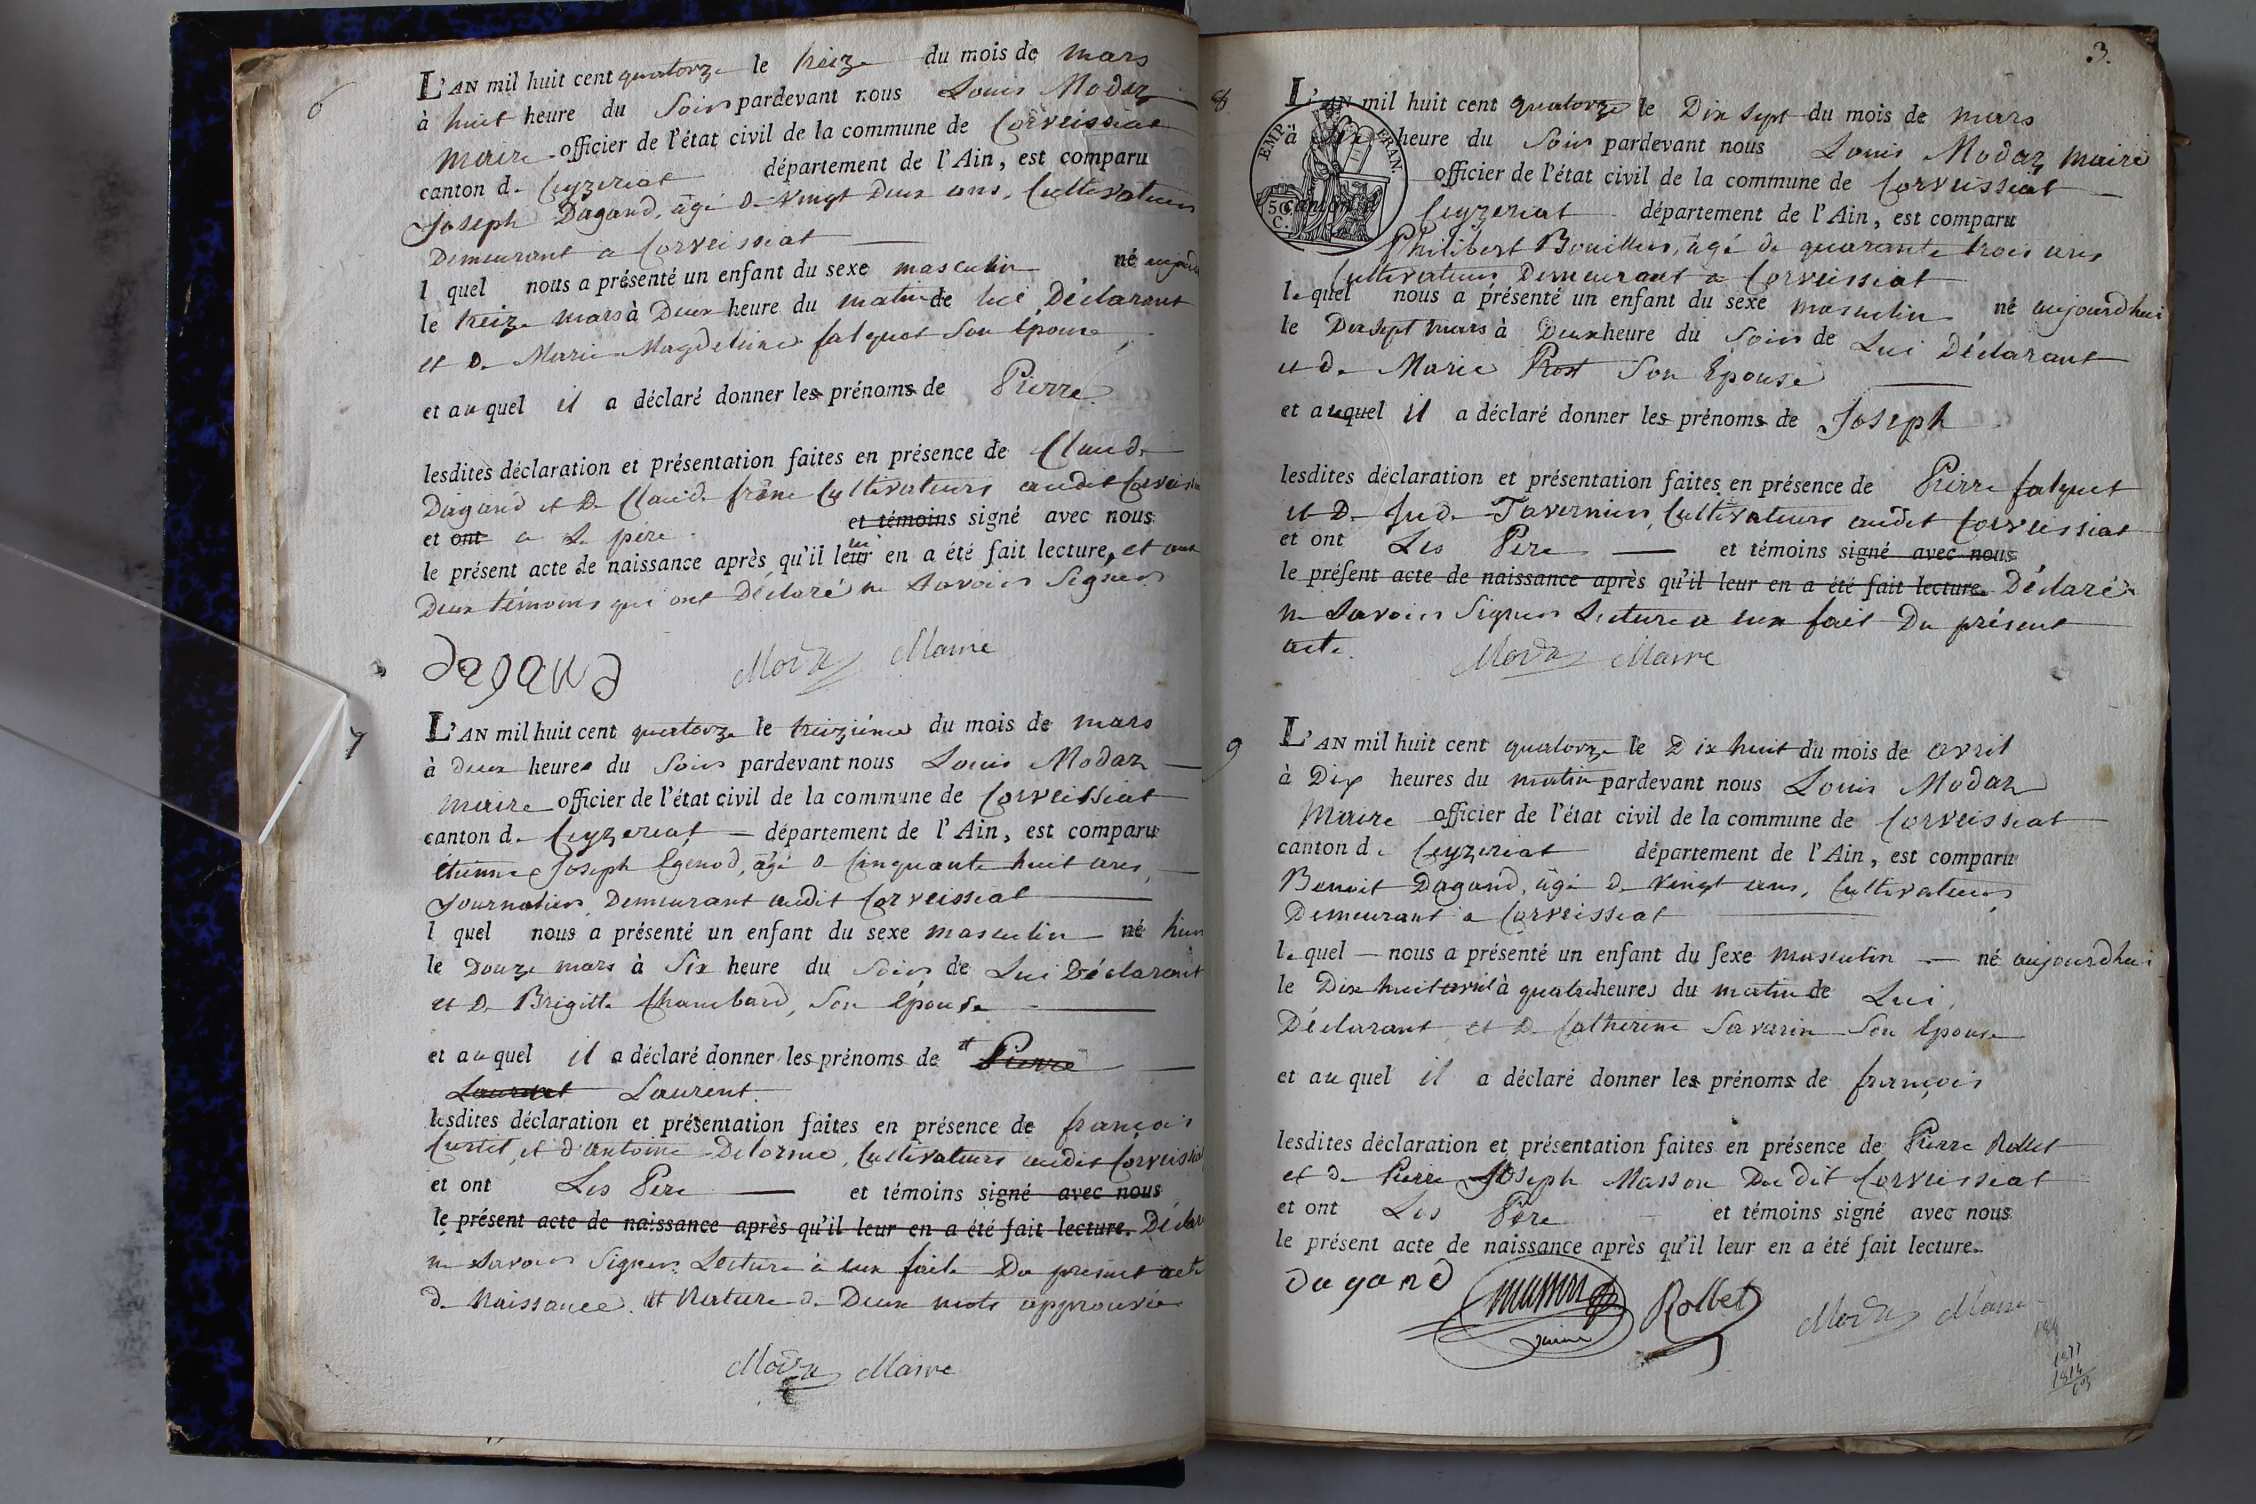 6
L'AN mil huit cent quatorze le treize du mois de mars
à huit heure du Soir pardevant nous Louis Modaz
Maire officier de l'état civil de la commune de Corveissiat
canton de Ceyzeriat département de l'Ain, est comparu
Joseph Dagand, âgé de vingt deux ans, Cultivateur
Demeurant a Corveissiat
l quel nous a présenté un enfant du sexe masculin né aujourd
le treize mars à Deux heure du matin de lui Déclarant
et de Marie Magdeleine falquet Son épouse
et au quel il a déclaré donner les prénoms de Pierre
lesdites déclaration et présentation faites en présence de Claude
Dagand et De Claude frêne Cultivateurs audit Corveissia
et ont a Le père et témoins signé avec nous
le présent acte de naissance après qu'il leur lui en a été fait lecture, et aux
Deux témoins qui ont Déclaré ne Savoir Signer
Dagand Modaz Maire
7
L'AN mil huit cent quatorze le treizième du mois de mars
à deux heures du Soir pardevant nous Louis Modaz
Maire officier de l'état civil de la commune de Corveissiat
canton de Ceyzeriat département de l'Ain, est comparu
étienne Joseph Egenod, âgé de Cinquante huit ans,
Journalier, Demeurant audit Corveissiat
l quel nous a présenté un enfant du sexe masculin né hier
le Douze mars à Six heure du Soir de Lui Déclarant
et De Brigitte Chambard, Son épouse
et au quel il a déclaré donner les prénoms de # Pierre
Laurent Laurent
lesdites déclaration et présentation faites en présence de françois
Curtet, et d'antoine Delorme, Cultivateurs audit Corveissiat
et ont Les Père et témoins signé avec nous
le présent acte de naissance après qu'il leur en a été fait lecture. Déclaré
ne Savoir Signer Lecture à eux faite Du present acte
de Naissance. # Rature de Deux mots approuvée
Modaz Maire
3.
8
L'AN mil huit cent quatorze le Dix Sept du mois de mars
à heure du Soir pardevant nous Louis Modaz maire
officier de l'état civil de la commune de Corveissiat
canton Ceyzeriat département de l'Ain, est comparu
EMP. FRAN.
50 C.
Philibert Bouillier, âgé de quarante trois ans
Cultivateur Demeurant a Corveissiat
le quel nous a présenté un enfant du sexe masculin né aujourdhui
le Dix Sept mars à Deux heure du Soir de Lui Déclarant
et de Marie Prost Son Epouse
et auquel il a déclaré donner les prénoms de Joseph
lesdites déclaration et présentation faites en présence de Pierre falquet
et De Jude Tavernier, Cultivateurs audit Corveissiat
et ont Les Père et témoins signé avec nous
le présent acte de naissance après qu'il leur en a été fait lecture. Déclaré
ne Savoir Signer Lecture a eux fait Du présent
acte.
Modaz Maire
9
L'AN mil huit cent quatorze le Dix huit du mois de avril
à Dix heures du matin pardevant nous Louis Modaz
Maire officier de l'état civil de la commune de Corveissiat
canton de Ceyzeriat département de l'Ain, est comparu
Benoit Dagand, âgé de vingt ans, Cultivateur
Demeurant a Corveissiat
le quel nous a présenté un enfant du sexe masculin né aujourdhui
le Dix huit avril à quatre heures du matin de Lui,
Déclarant et De Catherine Savarin Son Epouse
et au quel il a déclaré donner les prénoms de françois
lesdites déclaration et présentation faites en présence de Pierre Rollet
et de Pierre Joseph Masson Du dit Corveissiat
et ont Les Père et témoins signé avec nous
le présent acte de naissance après qu'il leur en a été fait lecture.
Dagand masson Rollet Modaz Maire
1877
1814